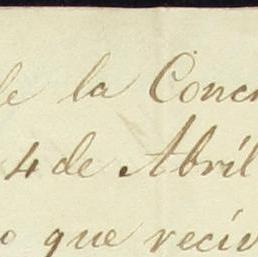 de la Conc
4 de Abril
o que reciv